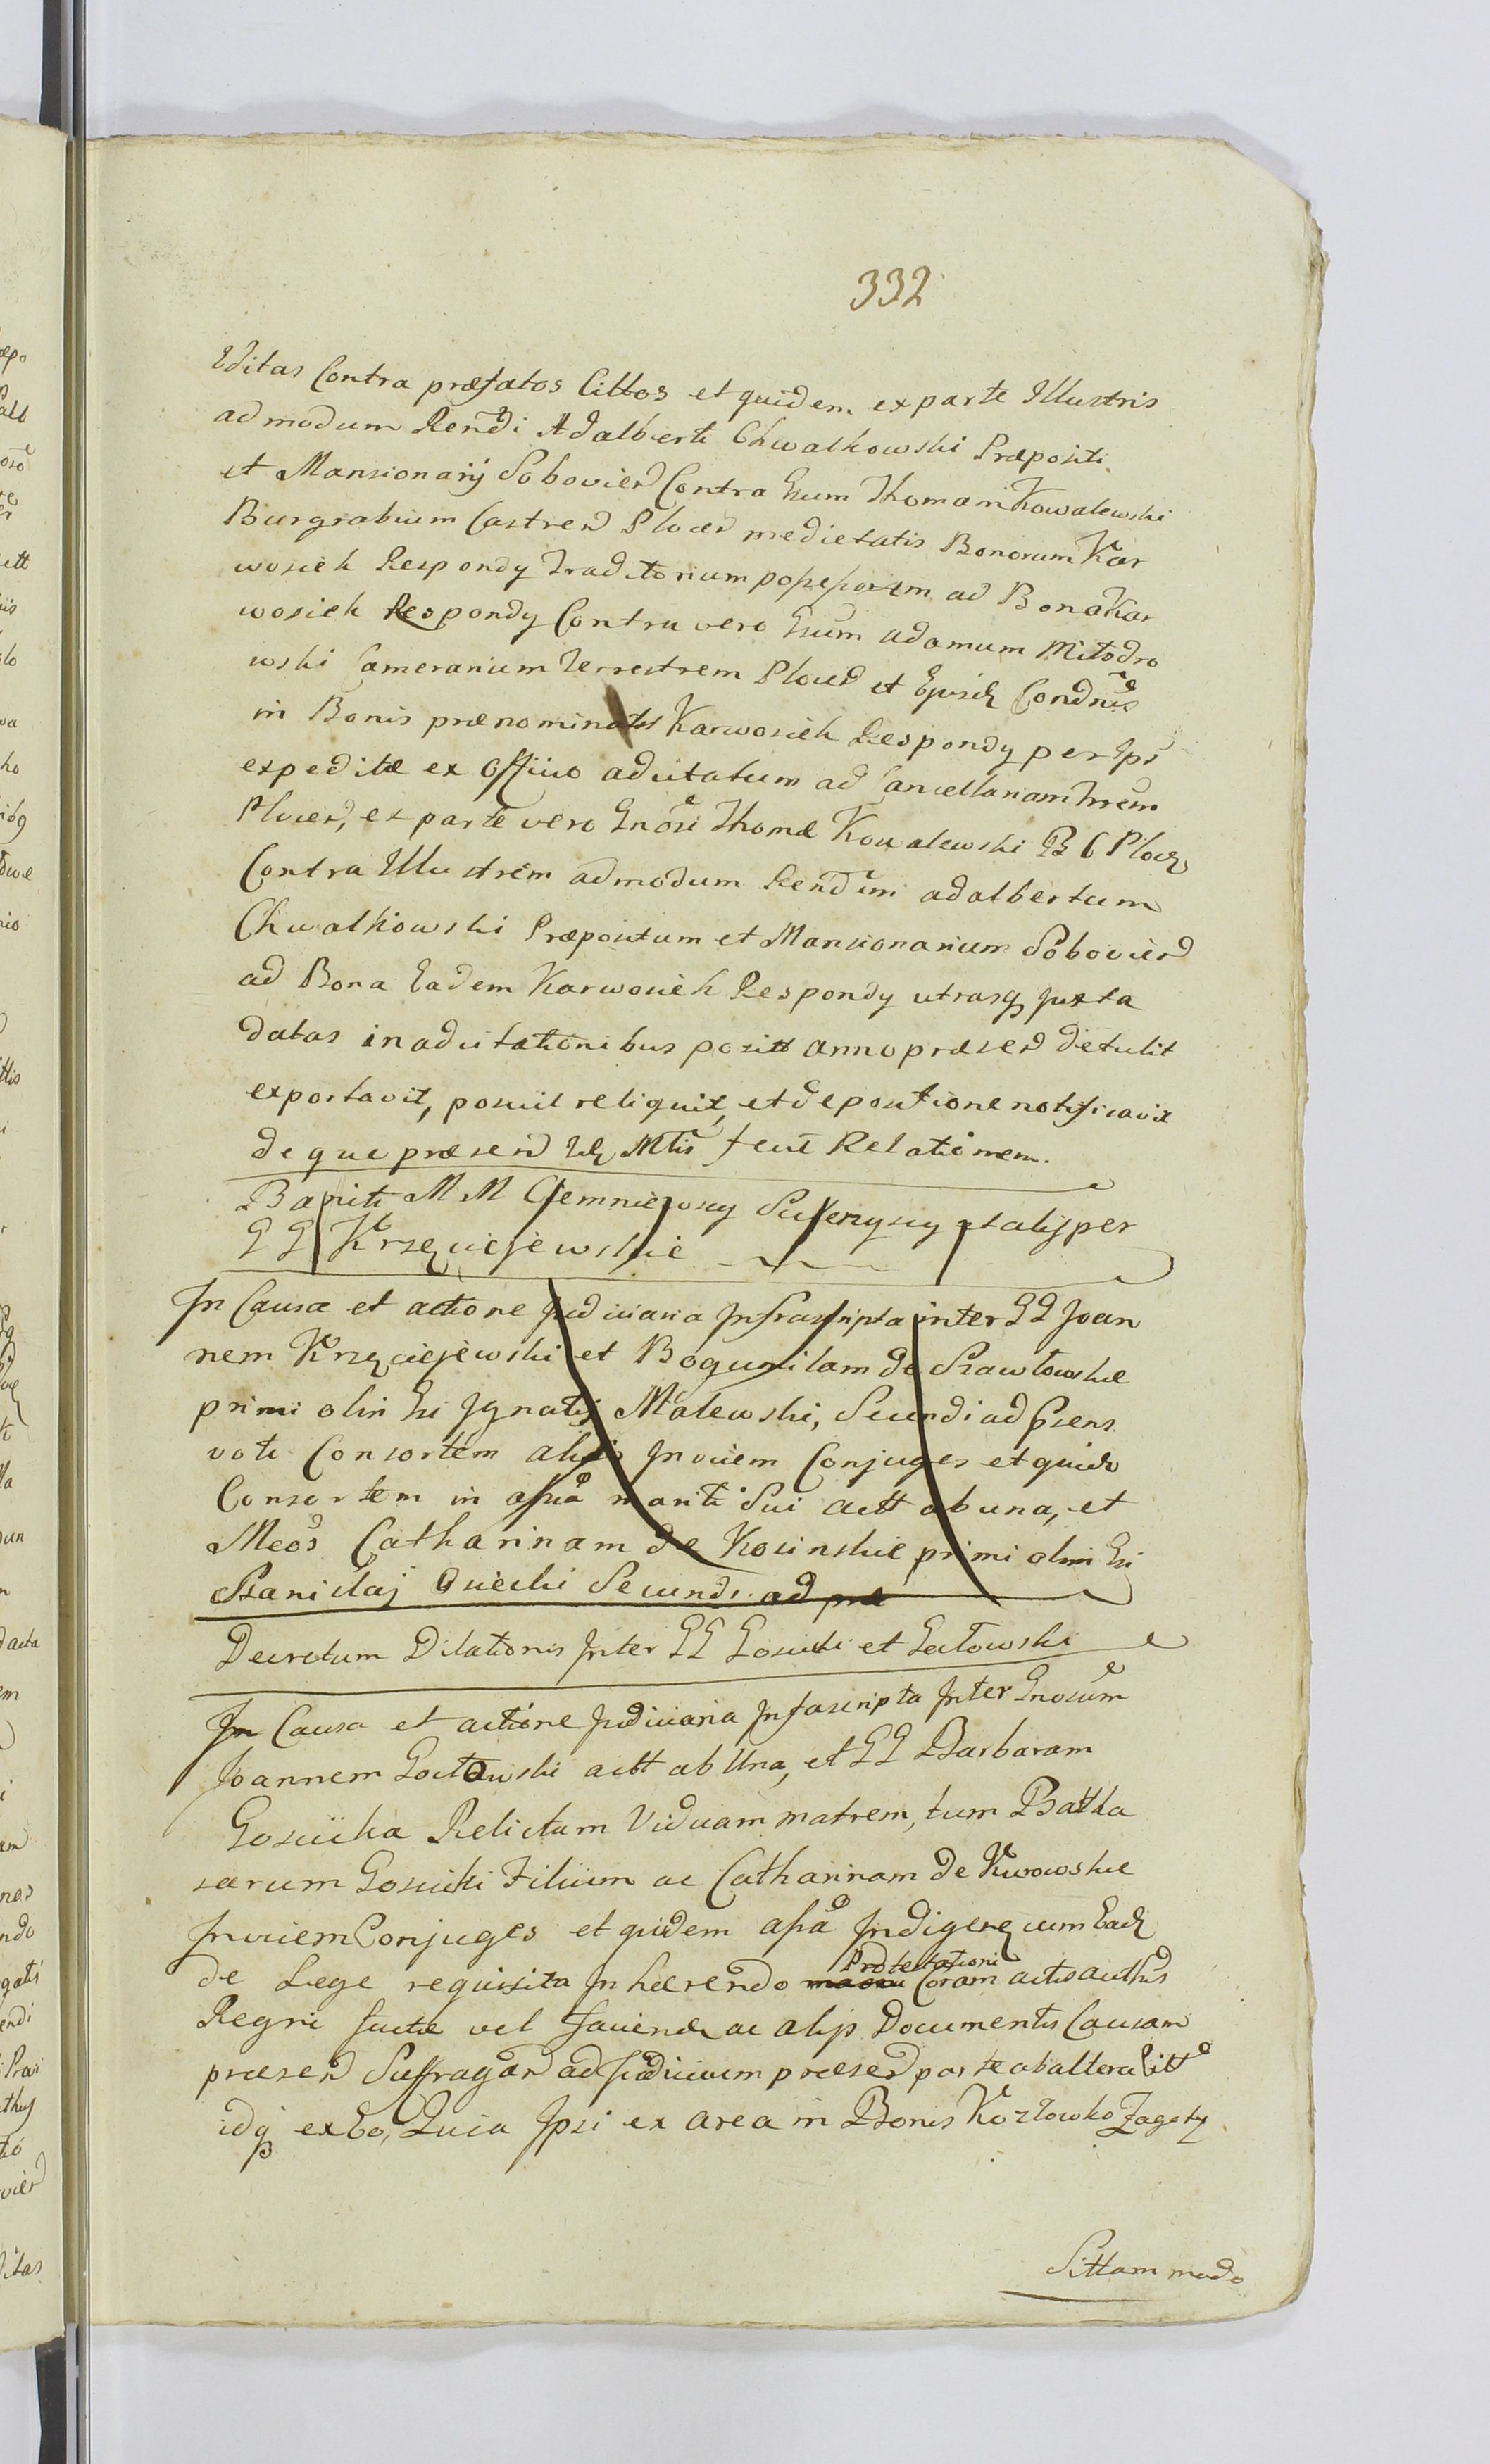 332
Editas Contra præfatos Cittos et quidem ex parte Illustris
admodum Rendi Adalberti Chwalkowski Præpositi
et Mansionarij Sobovien Contra Gsum Thomam Kowalewski
Burgrabium Castren Plocen medietatis Bonorum Kar
wosiek Respondy Traditorium possessorem ad Bona Kar
wosiek Respondy Contra vero Gsum Adamum Mitodro
wski Camerarium Terrestrem Plocen et Ejusd Condnis
in Bonis prænominatis Karwosiek Respondy per Ipsi
expeditæ ex Officio adcitatum ad Cancellariam Trrem
Plocen, ex parte vero Gnosi Thomæ Kowalewski B C Plocen
Contra Illustrem admodum Rendum Adalbertum
Chwalkowski Præpositum et Mansionarium Sobovien
ad Bona Eadem Karwosiek Respondy utrasq juxta
datas in adcitationibus positt anno præsen detulit
exportavit, posuit reliquit, et de positione notificavit
de que præsen Mtis fecit Relationem.
Baniti M M et alij per
G G Krzęciejewskie
In Causa et actione Judiciaria Infrascripta inter G G Joan
nem Krzęciejewski et Bogumilam de Szawłowskie
primi olim Gsi Ignatij Malewski, Secundi ad Psens
voti Consortem alijs Invicem Conjuges et quidem
Consortem in assa mariti Sui actt ab una, et
Meos Catharinam de Kosinskie primi olim Gsi
Stanislaj Osiecki Secundi ad præ
Decretum Dilationis Inter G G Gosicki et Goctowski
In Causa et actione Judiciaria Infrascripta Inter Gnosum
Joannem Goctowski actt ab Una, et G G Barbaram
Gosicka Relictam Viduam matrem, tum Baltha
sarum Gosicki Filium ac Catharinam de Kurowskie
Invicem Conjuges et quidem assa Indigen cum Ead
de Lege requisita Inhærendo Protestationi Coram actis authis
Regni factæ vel faciendæ ac alijs Documentis Causam
præsen Suffragan ad Judicium præsen parte ab altera Citt
idq ex Eo, Quia Ipsi ex area in Bonis Kozłowko Zagoty
Sittam modo